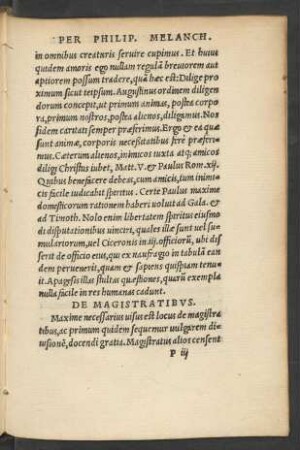 PER PHILIP. MELANCH.
in omnibus creaturis seruire cupimus. Et huius
quidem amoris ego nullam regulã breuiorem aut
aptiorem possum tradere, quã hæc est: Dilige pro
ximum sicut teipsum. Augustinus ordinem diligen
dorum concepit, ut primum animas, postea corpo
ra, primum nostros, postea alienos, diligamus. Nos
fidem caritati semper præferimus. Ergo & ea quæ
sunt animæ, corporis necessitatibus ferè præferi-
mus. Cæterum alienos, inimicos iuxta atq; amicos
diligi Christus iubet, Matt. V. & Paulus Rom. xij.
Quibus benefacere debeas, cum amicis, tum inimi-
cis facile iudicabit spiritus. Certe Paulus maxime
domesticorum rationem haberi uoluit ad Gala. &
ad Timoth. Nolo enim libertatem spiritus eiusmo
di disputationibus uinciri, quales illæ sunt uel sum
mulariorum, uel Ciceronis in iij. officiorũ, ubi dis
serit de officio eius, qui ex naufragio in tabulã ean
dem peruenerit, quam & sapiens quispiam tenu-
it. Apagesis illas stultas quæstiones, quarũ exempla
nulla facile in res humanas cadunt.
DE MAGISTRATIBVS.
Maxime necessarius uisus est locus de magistra
tibus, ac primum quidem sequemur uulgarem di-
uisionẽ, docendi gratia. Magistratus alios censent
P iij